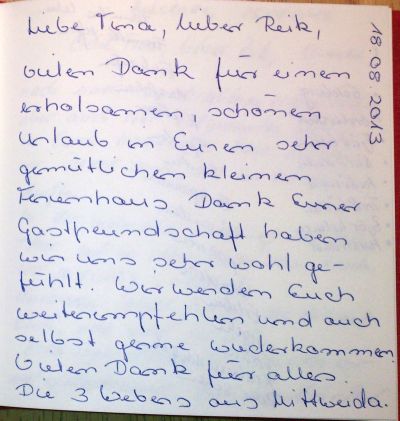 Liebe Tina, lieber Reik,
18.08.2013
vielen Dank für einen
erholsamen, schönen
Urlaub in Eurem sehr
gemütlichen kleinen
Ferienhaus. Dank Eurer
Gastfreundschaft haben
wir uns sehr wohl ge-
fühlt. Wir werden Euch
weiterempfehlen und auch
selbst gerne wiederkommen.
Vielen Dank für alles.
Die 3 Webers aus Mittweida.